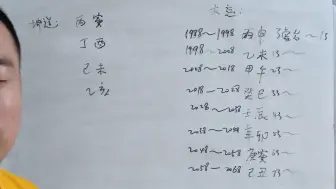 坤造：丙寅
丁酉
己未
乙亥
大运：
1988～1998 丙申
1998～2008 乙未 13～
2008～2018 甲午 23～
2018～2028 癸巳 33～
2028～2038 壬辰 43～
2038～2048 辛卯 53～
2048～2058 庚寅 63～
2058～2068 己丑 73～